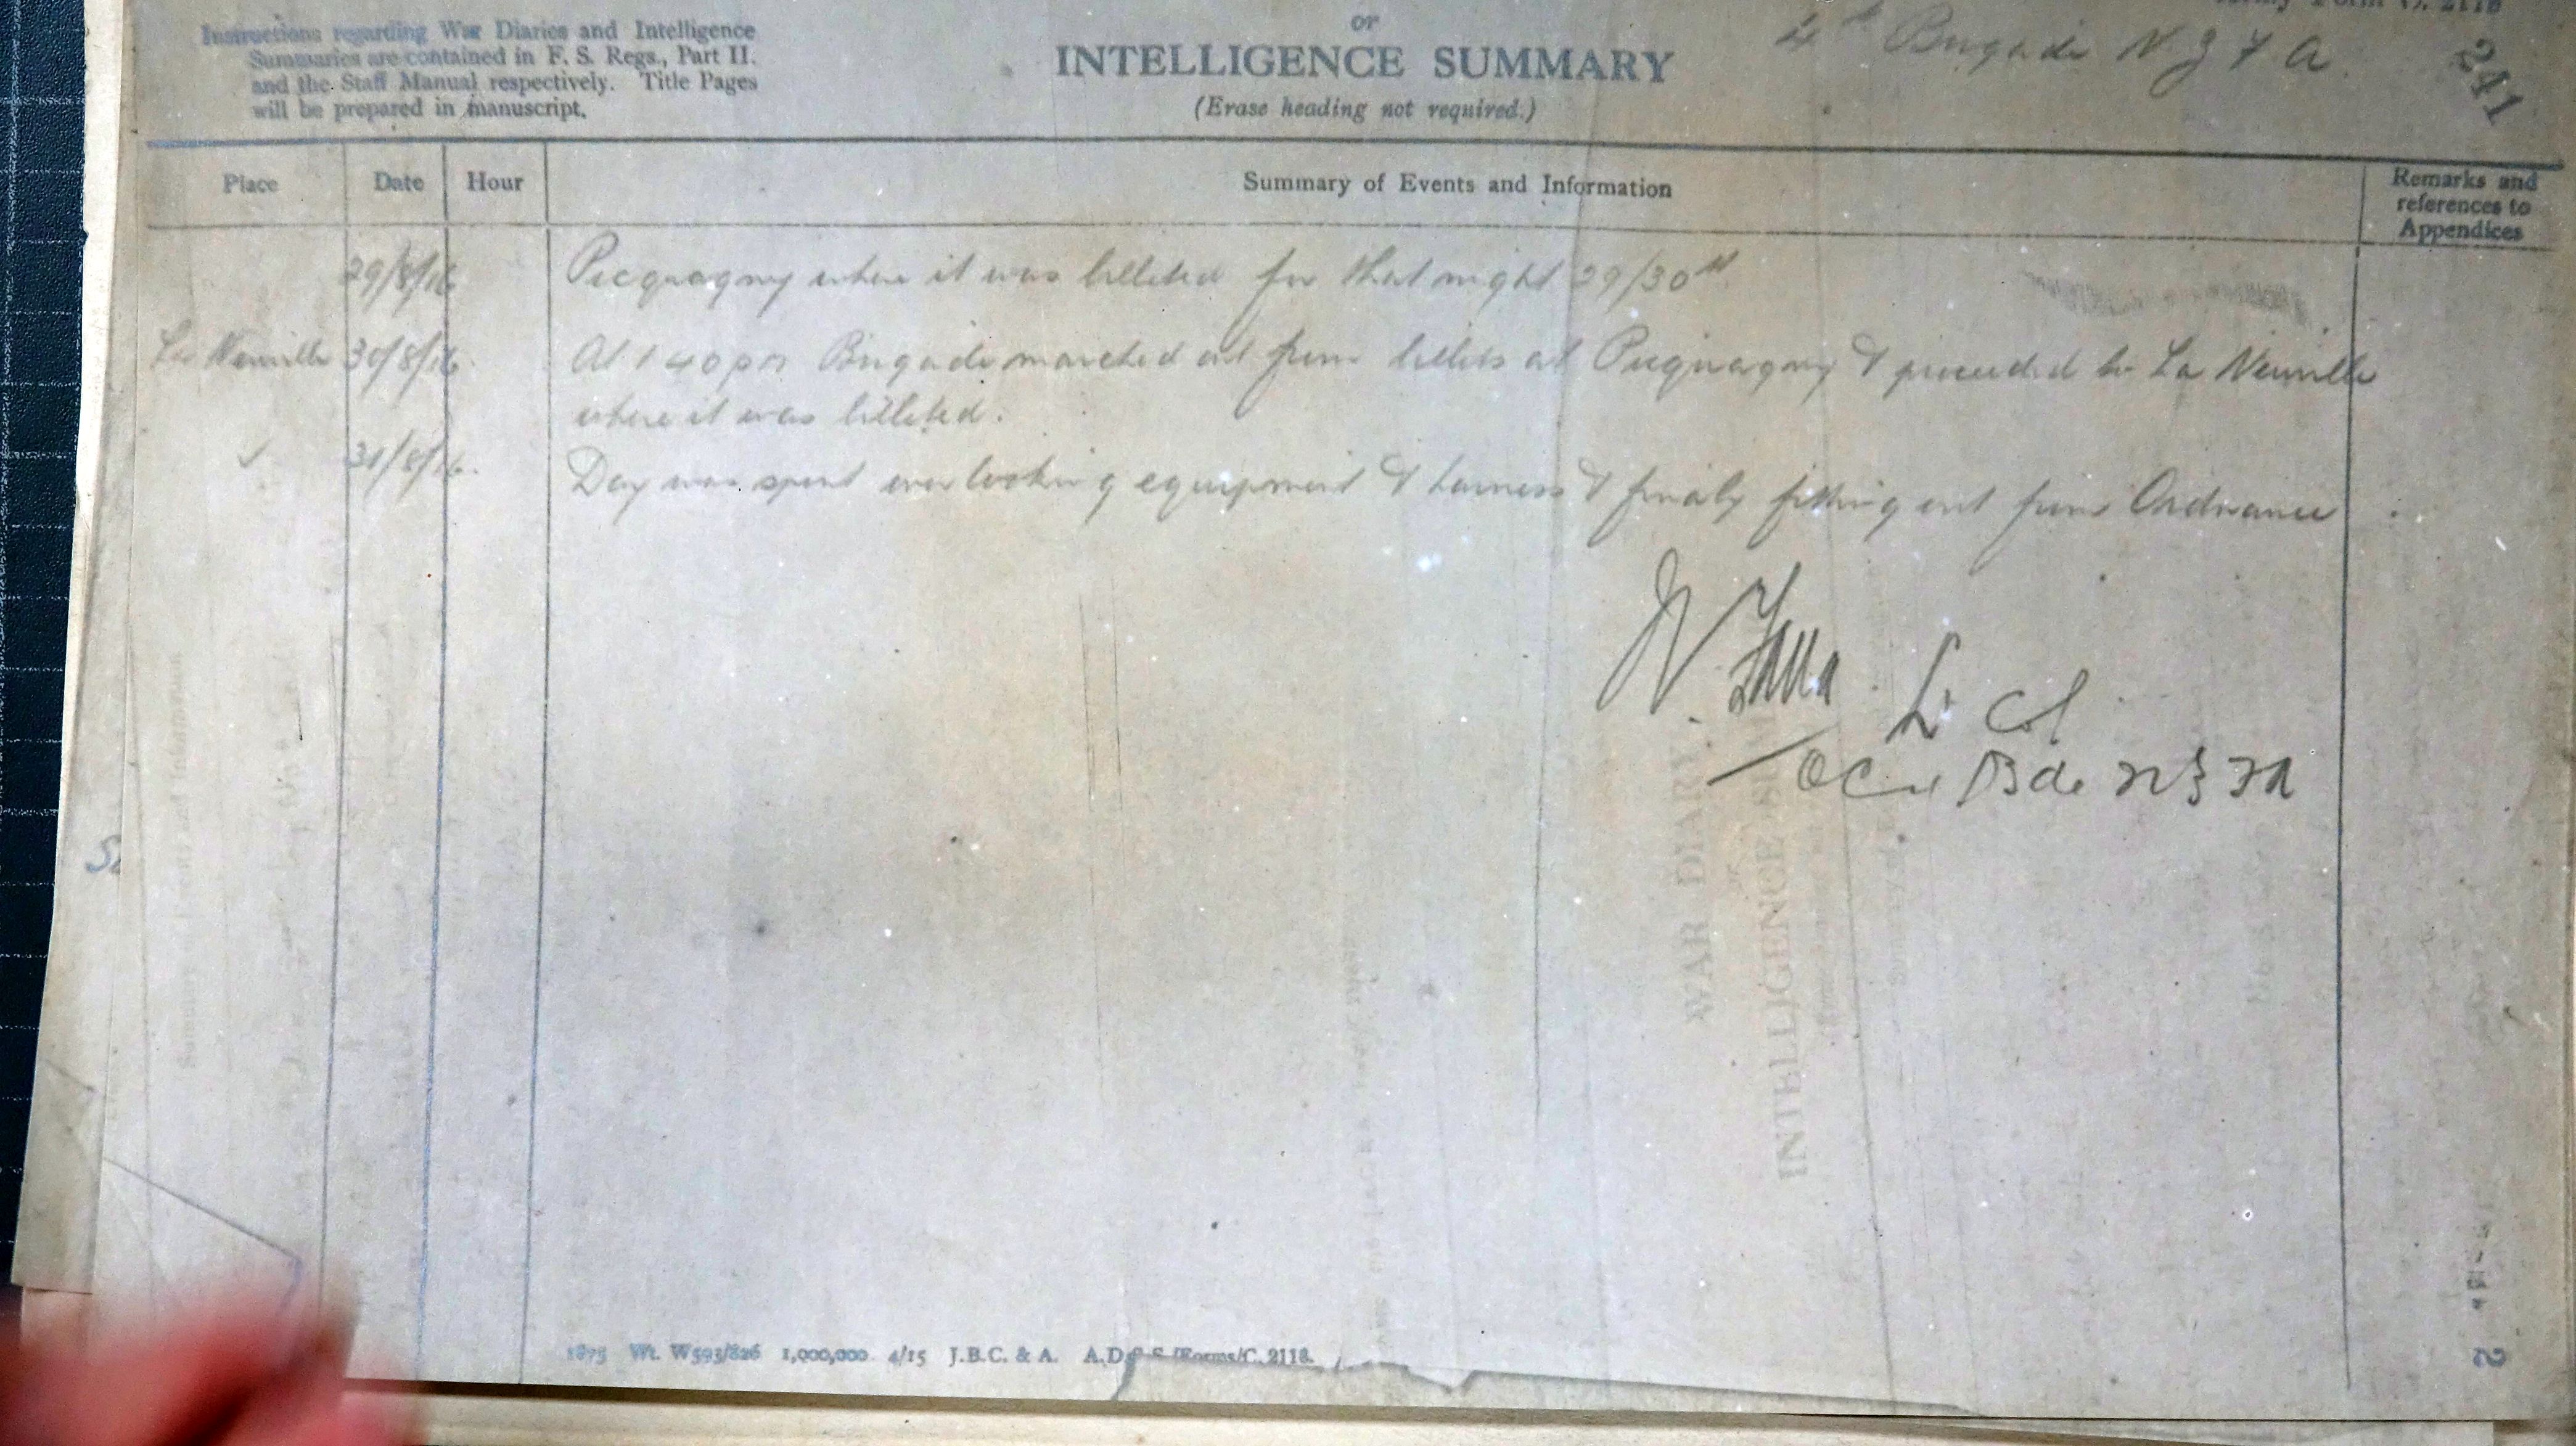 or
INTELLIGENCE SUMMARY
(Erase heading not required.)
Instructions regarding War Diaries and Intelligence
Summaries are contained in F. S. Regs., Part II.
and the Staff Manual respectively. Title Pages
will be prepared in manuscript.
Army Form C. 2118
4th Brigade N Z F A
241
Place Date Hour Summary of Events and Information Remarks and references to Appendices
29/8/16 Picquagny where it was billeted for that night 29/30th
La Neuville 30/8/16. At 1 40 pm Brigade marched out from billets at Picquagny & proceeded to La Neuville
where it was billeted.
31/8/16. Day was spent overlooking equipment & harness & finally fitting out from Ordnance.
Lt Col
OC 4 Bde NZFA
WAR DIARY
INTELLIGENCE SUMMARY
1875 Wt. W593/826 1,000,000 4/15 J.B.C. & A. A.D.S.S./Forms/C. 2118.